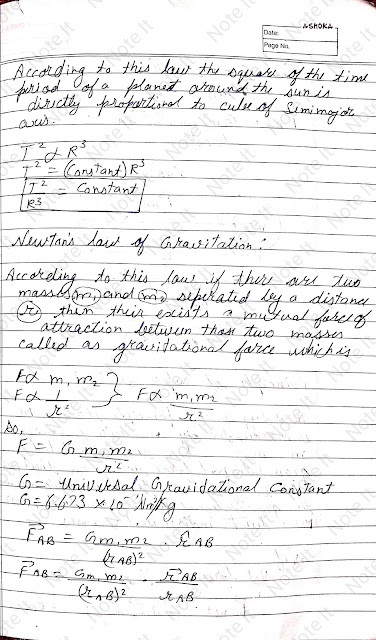 ASHOKA
Date:
Page No.
According to this law the square of the time
period of a planet around the sun is
directly proportional to cube of Semimajor
axis.
T² ∝ R³
T² = (Constant) R³
T²/R³ = Constant
Newtons law of Gravitation:
According to this law if there are two
masses m₁ and m₂ seperated by a distance
r then their exists a mutual force of
attraction between those two masses
called as gravitational force which is
F ∝ m₁ m₂
F ∝ 1/r² } F ∝ m₁ m₂/r²
So,
F = G m₁ m₂/r²
G = Universal Gravidational Constant
G = 6.673 × 10
F⃗AB = G m₁ m₂/(rAB)² · r̂AB
F⃗AB = G m₁ m₂/(rAB)² · r⃗AB/rAB
Note It